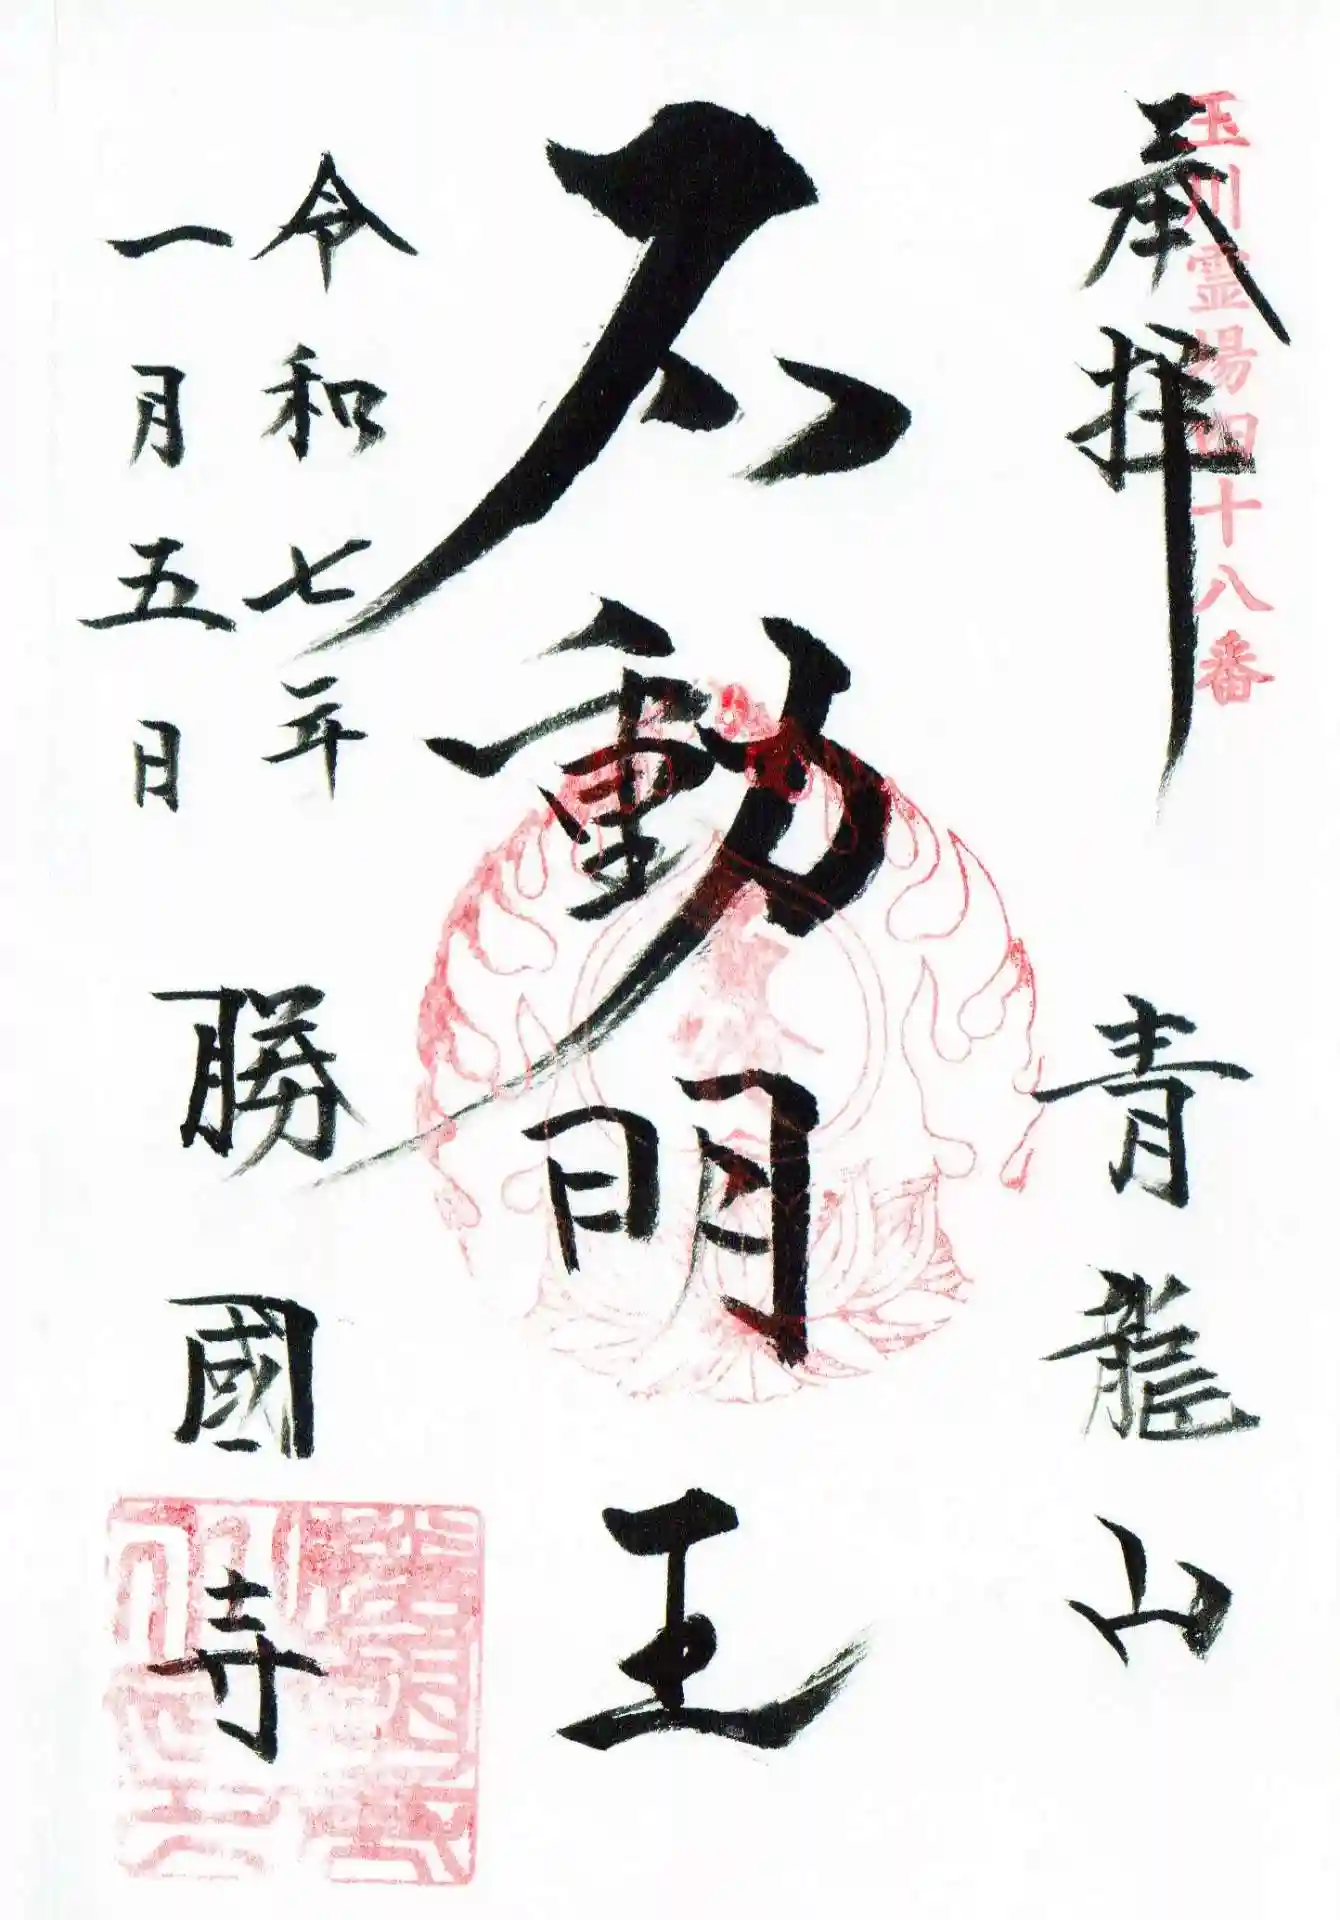 玉川霊場四十八番
奉拝
青龍山
不動明王
令和七年
一月五日
勝國寺